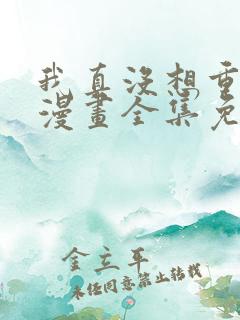 我真沒想重
漫畫全集免
金立平
未经同意禁止转载